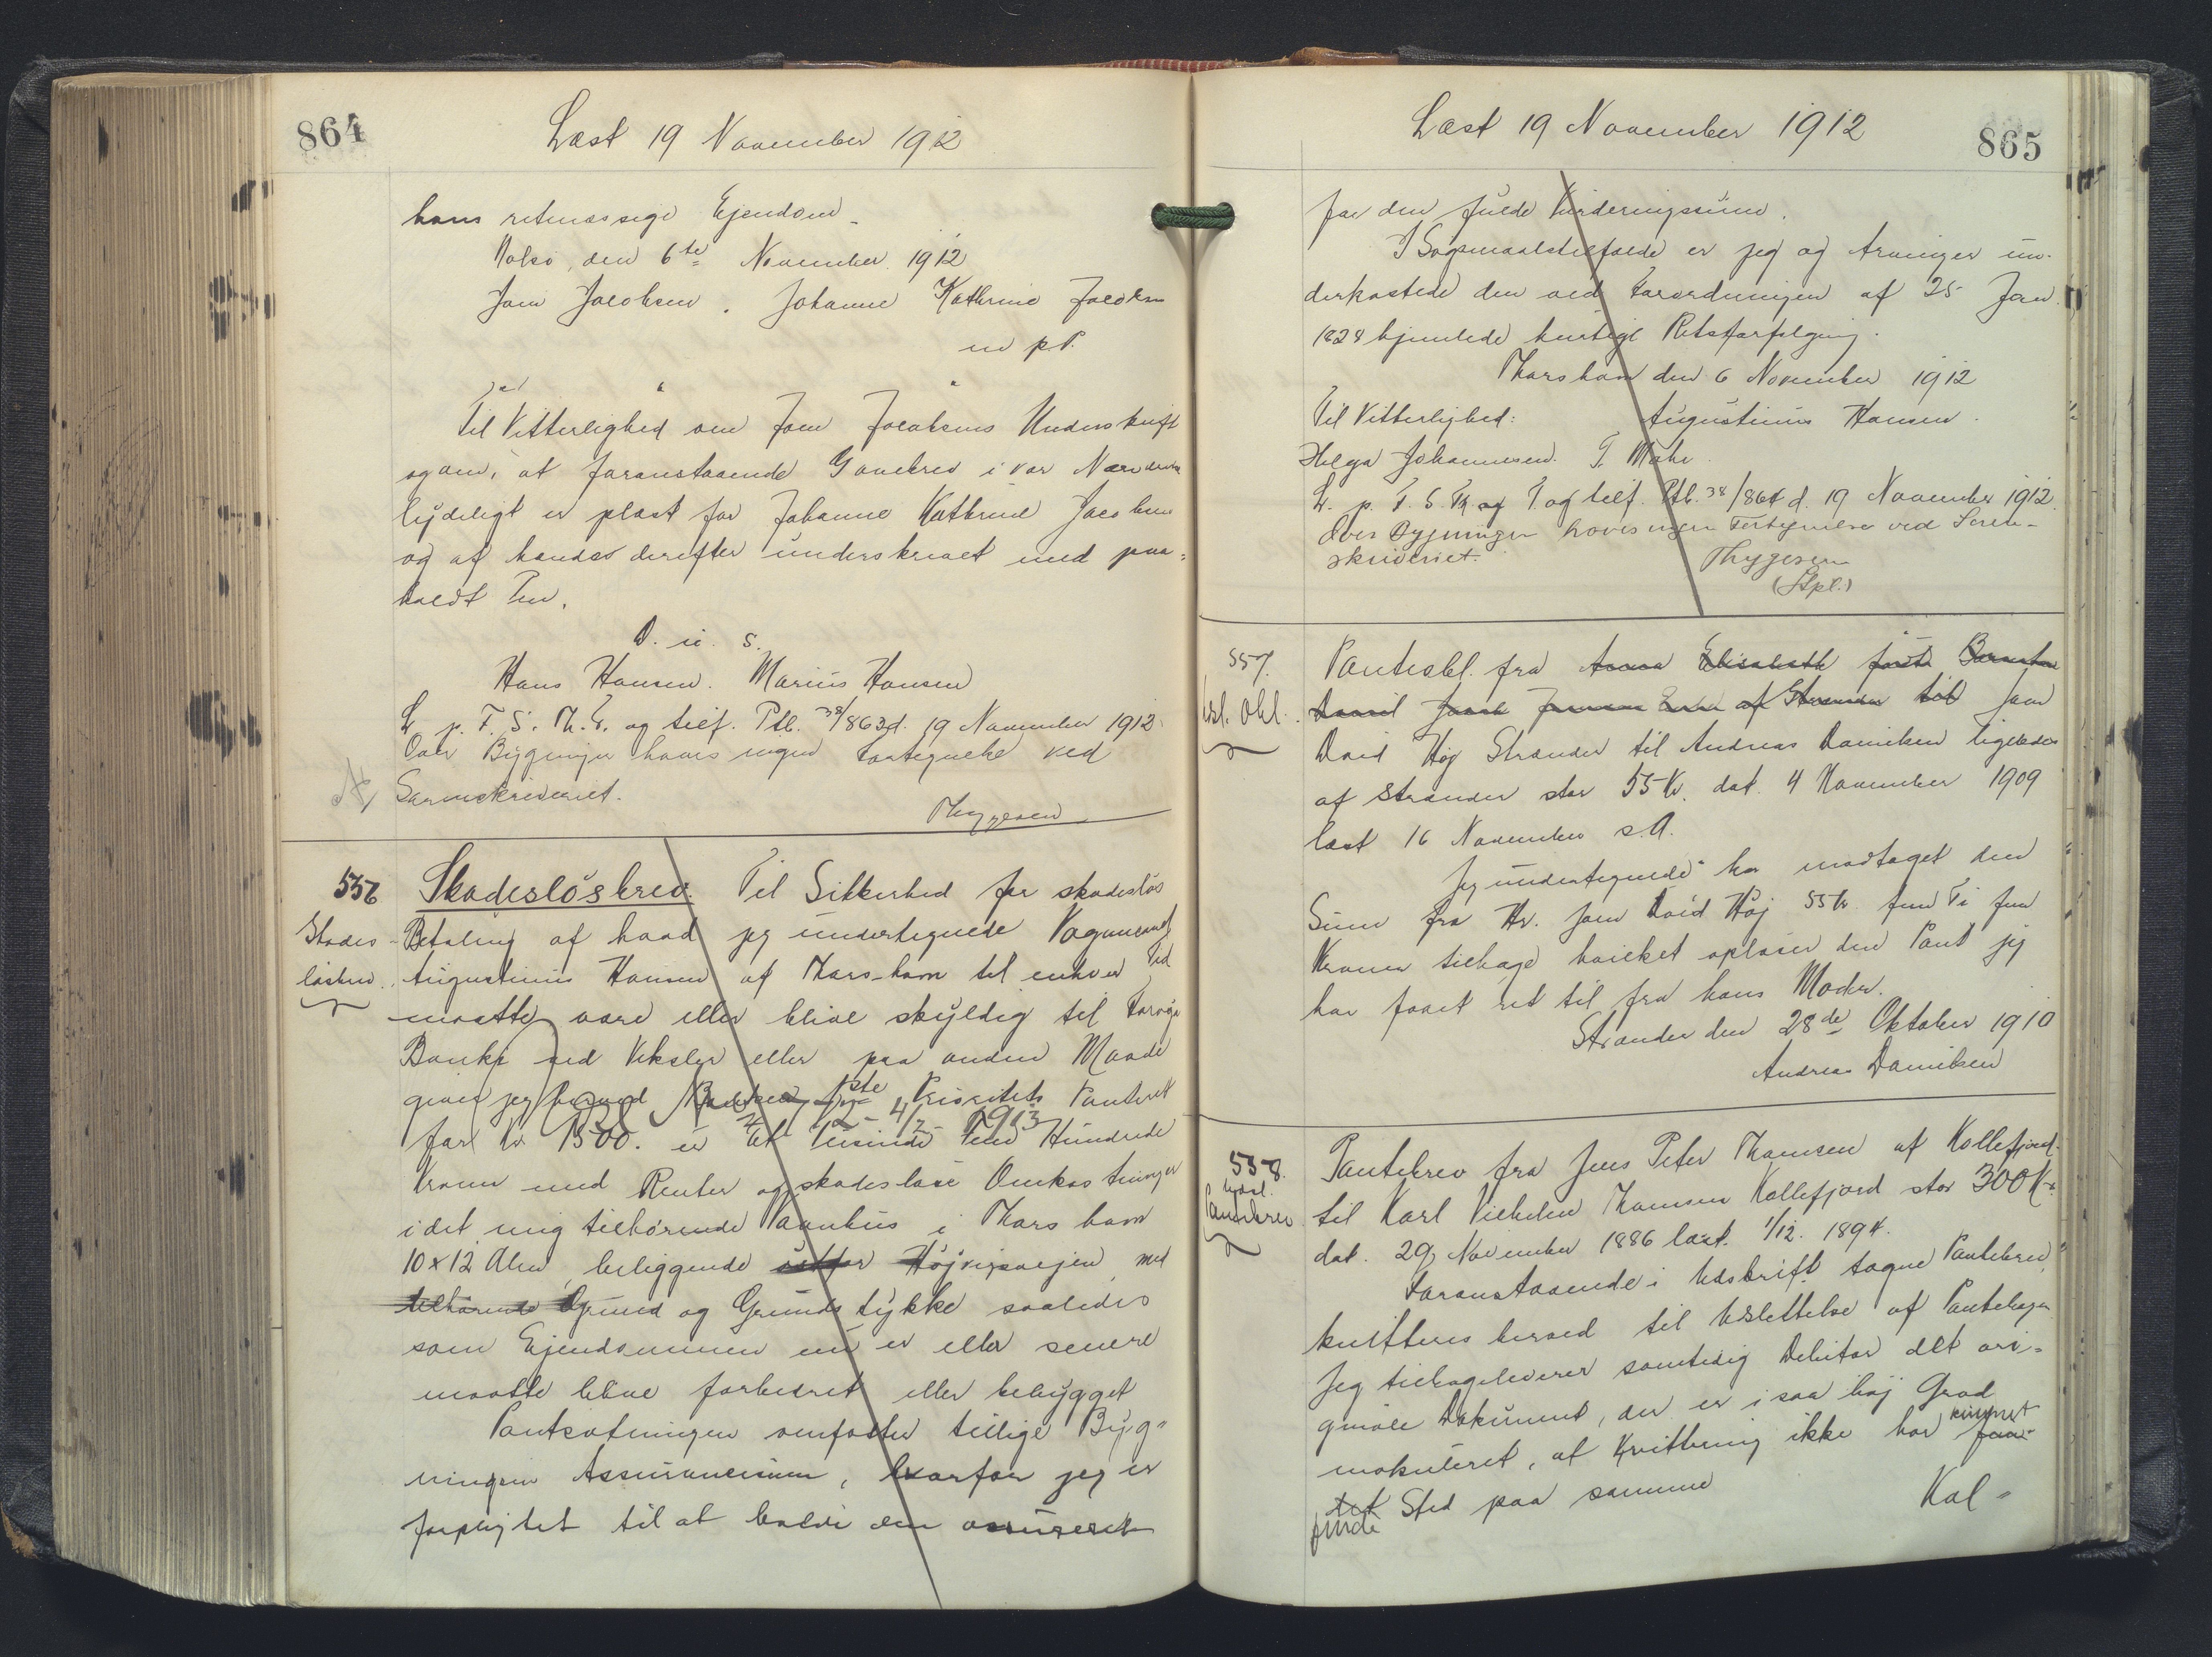 864
Læst 19 November 1912
hans retmæssige Ejendom
Nolsö, den 6te November 1912
Joen Jacobsen. Johanne Kathrine Jacobsen
m p. P.
Til Vitterlighed om Joen Jacobsens Underskrift
og om, at foranstaaende Gavebrev i vor Nærværelse
lydeligt er plæst for Johanne Kathrine Jacobsen
og af hendes derefter underskrevet med paa-
holdt Pen.
D. u. s.
Hans Hansen. Marius Hansen
L. p. F. S. Th. T. og tilf. Ptb. 38/863 d. 19 November 1912.
Over Bygninger haves ingen Fortegnelse ved
Sorenskriveriet.
Thygesen
556
Skadeslösbrev. Til Sikkerhed for skadeslös
Skades-
Betaling af hvad jeg undertegnede Vognmand
lösbrev.
Augustinus Hansen af Thorshavn til enhver Tid
maatte være eller blive skyldig til Færøje
Banke ved Veksler eller paa anden Maade
giver jeg herved Banken 1ste Prioritets Panteret
for Kr 1500. er Et Tusinde Fem Hundrede
38 12- 4/2- 1913
Kroner med Renter og skadesløse Omkostninger
i det mig tilhørende Vaanhus i Thorshavn
10 x 12 Alen, beliggende østfor Højvigsvejen, med
tilhørende Grund og Grundstykke saaledes
som Ejendommen nu er eller senere
maatte blive forbedret eller bebygget
Pantsætningen omfatter tillige Byg-
ningens Assurancesum, hvorfor jeg er
forpligtet til at holde den assureret
865
Læst 19 November 1912
for den fulde Vurderingssum.
I Søgsmaalstilfælde er jeg og Arvinger un-
derkastede den ved Forordningen af 25 Jan.
1828 hjemlede hurtige Retsforfølgning.
Thorshavn den 6 November 1912
Til Vitterlighed: Augustinus Hansen.
Helga Johannesen. T. Mohr.
L. p. F. S. Th og T. og tilf. Ptb. 38/864 d. 19 November 1912.
Over Bygninger haves ingen Fortegnelse ved Soren-
skriveriet.
Thygesen
(Stpl.)
557.
Panteobl. fra Anna Elisabeth født
Udsl. Obl.
af Strænder til Joen
David Høj Strænder til Andreas Danielsen ligeledes
af Strænder stor 55 Kr. dat. 4 November 1909
læst 16 November s. A.
Jeg undertegnede har modtaget den
Sum fra Hr. Joen David Høj 55 Kr. fem Ti fem
Kroner tilbage hvilket opløser den Pant jeg
har faaet ret til fra hans Moder.
Strænder den 28de Oktober 1910
Andreas Danielsen
558.
Pantebrev fra Jens Peter Thomsen af Kollefjord
Udsl.
Pantebrev
til Karl Vilhelm Thomsen Kollefjord stor 300 Kr.
dat. 29 November 1886 læst. 1/12. 1894.
Foranstaaende i Udskrift tagne Pantebrev
kvitteres herved til Udslettelse af Pantebogen
Jeg tilbageleverer samtidig Debitor det ori-
ginale Dokument, der er i saa høj Grad
makuleret, at Kvittering ikke har kunnet faa-
tet Sted paa samme
finde
Kol-